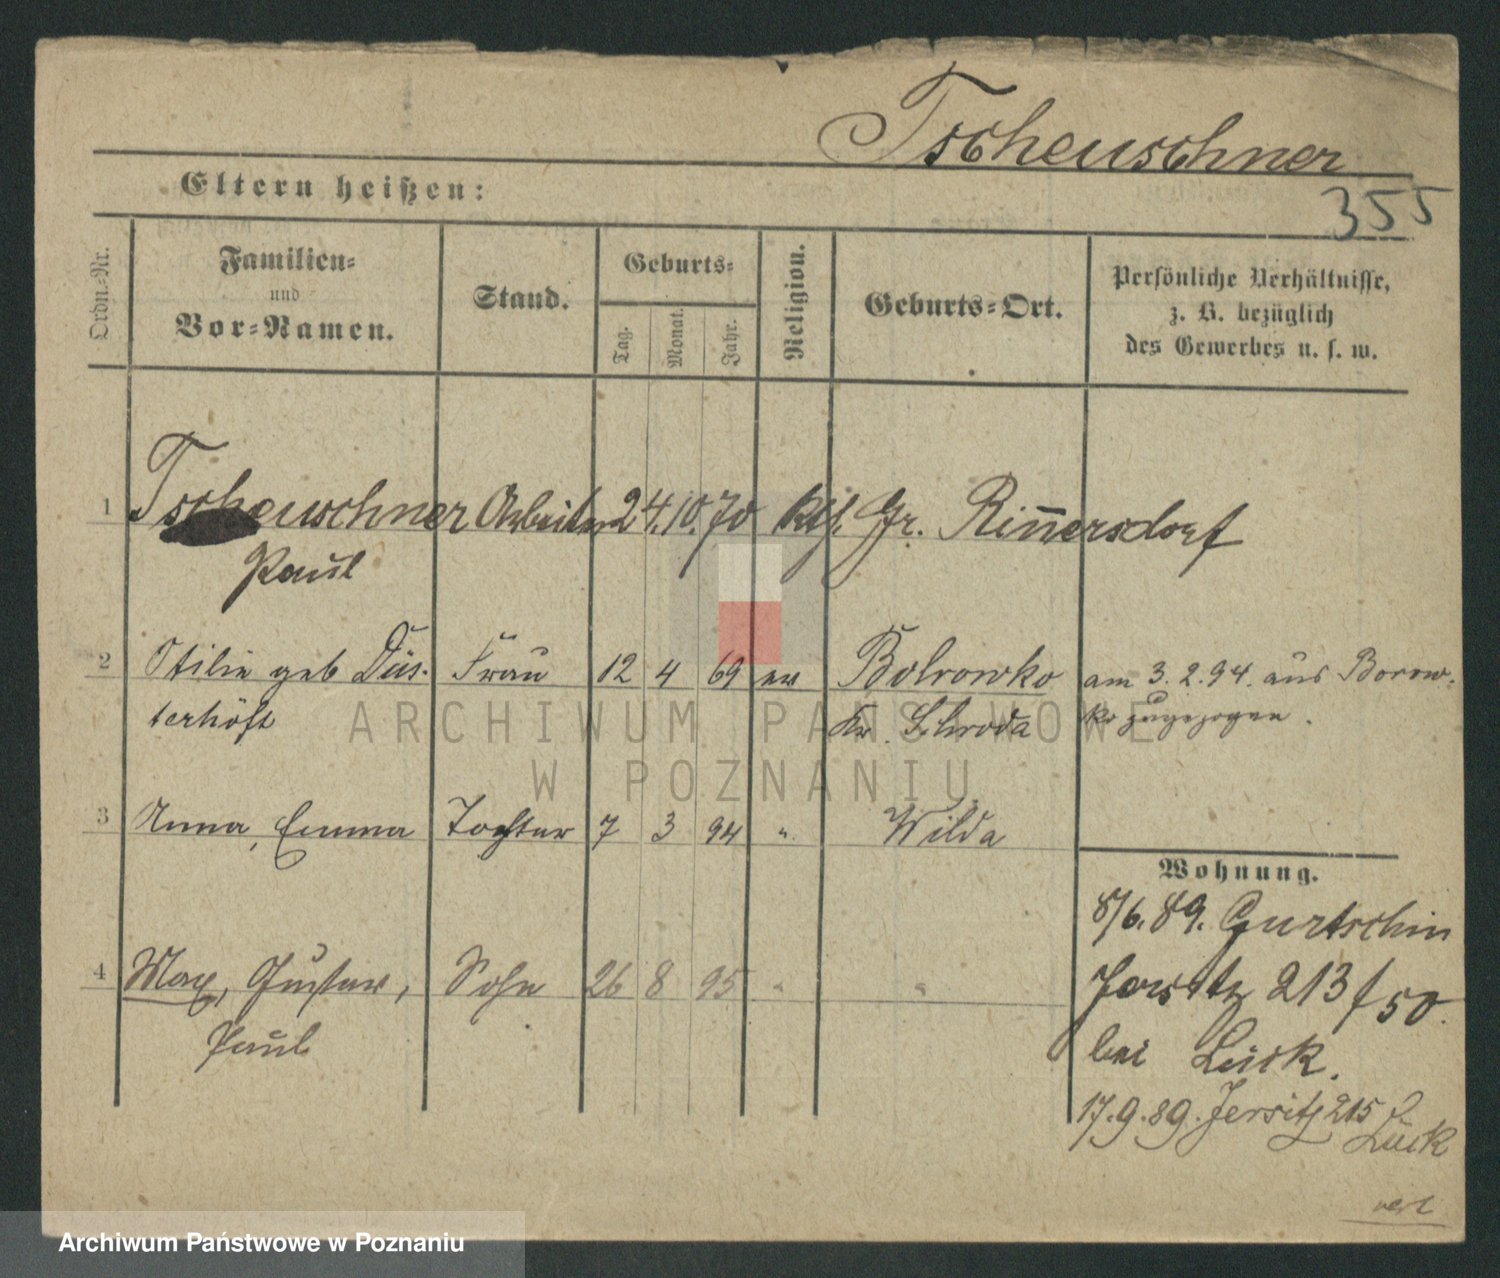 Tscheuschner
355
Eltern heißen:
Ordn.-Nr.
Familien-
und
Vor-Namen.
Stand.
Geburts-
Tag.
Monat.
Jahr.
Religion.
Geburts-Ort.
Persönliche Verhältnisse,
z. B. bezüglich
des Gewerbes u. s. w.
1 Tscheuschner Arbeiter 24. 10. 70 ktl. Gr. Rinnersdorf
Paul
2 Otilie geb Düs- Frau 12 4 69 ev Bolrowko am 3.2.94. aus Borow-
terhöft Kr. Schroda ko zugezogen.
3 Anna, Emma Tochter 7 3 94 " Wilda
Wohnung.
8/6.89. Gurtschin
4 Max, Gustav, Sohn 26 8 95 " "
Paul
213 f 50.
bei Lück.
17.9.89. Jersitz 215 b.
Lück
verl
ARCHIWUM PAŃSTWOWE
W POZNANIU
Archiwum Państwowe w Poznaniu